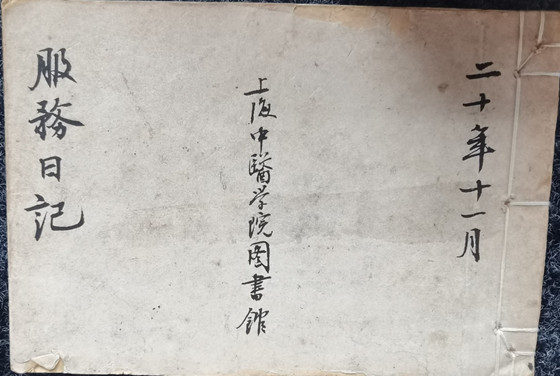 二十年十一月
上海中醫学院图書館
服務日記